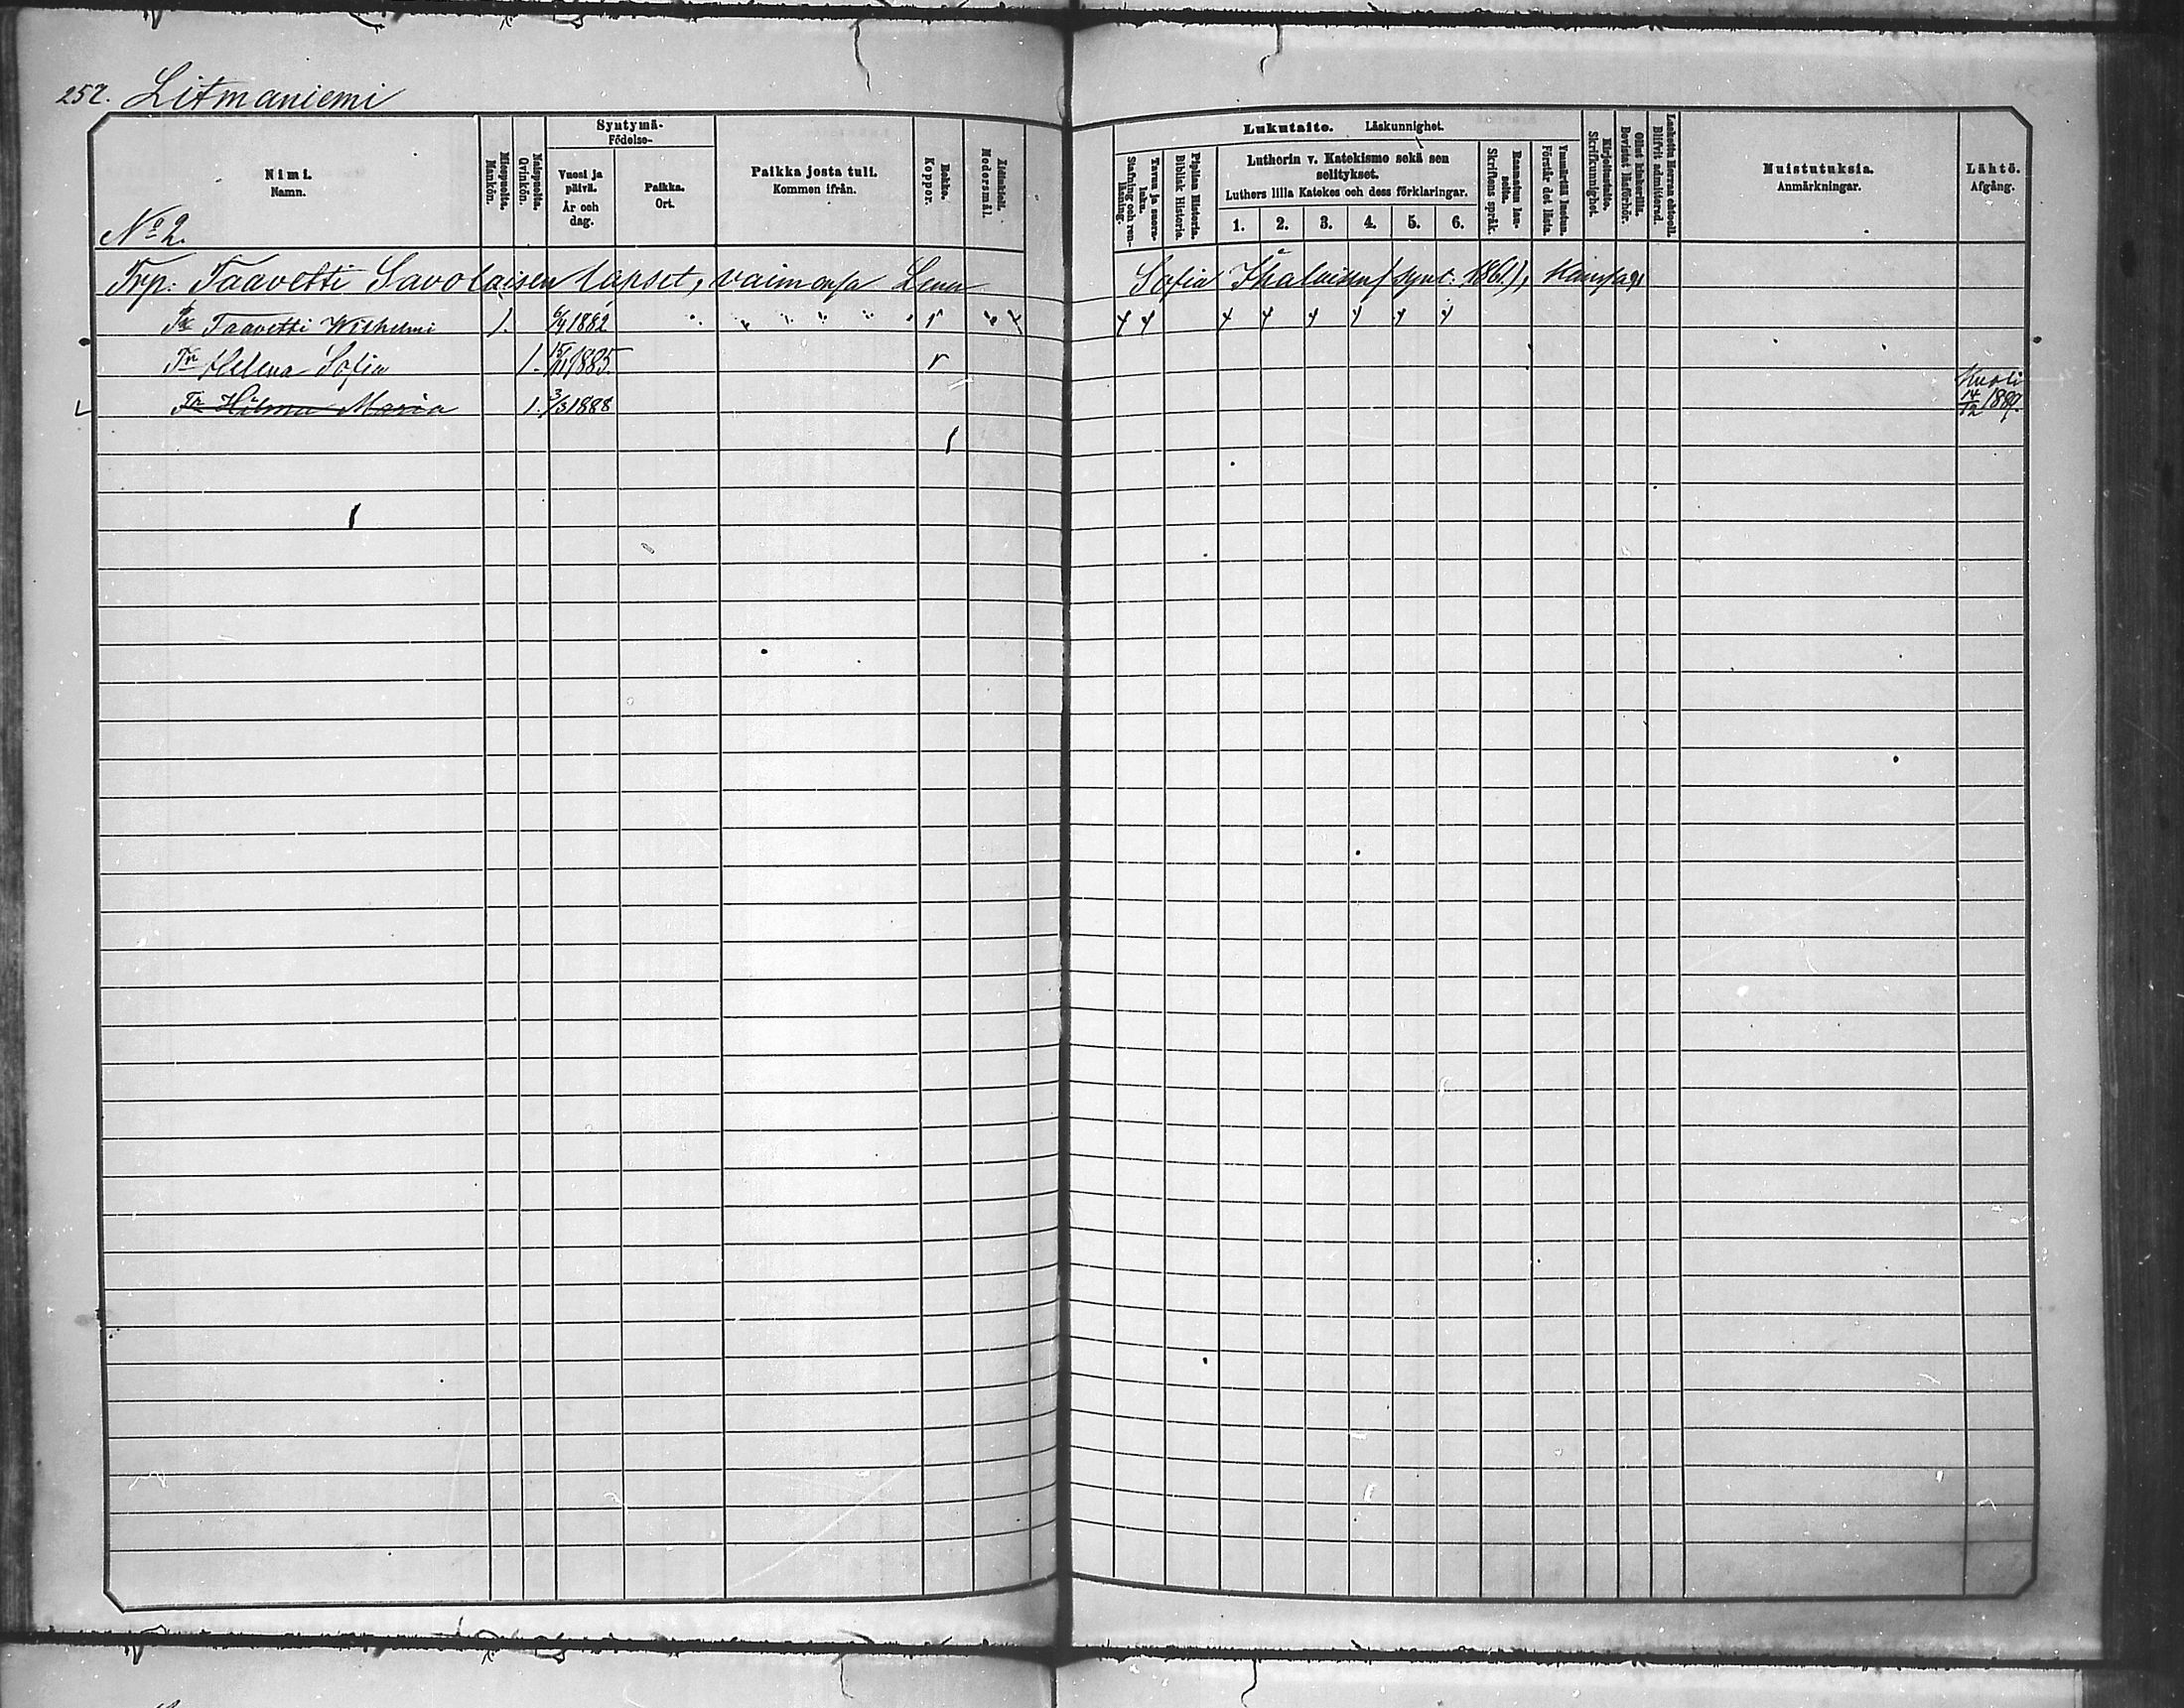 252. Litmaniemi
Syntymä-
Födelse-
Nimi.
Namn.
Miespuolta.
Mankön.
Naispuolta.
Qvinkön.
Vuosi ja päivä.
År och dag.
Paikka.
Ort.
Paikka josta tuli.
Kommen ifrån.
Rokko.
Koppor.
Äidinkieli.
Modersmål.
Lukutaito. Läskunnighet.
Tavuu ja suora-luku.
Stafning och ren-läsning.
Piplian Historia.
Biblisk Historia.
Lutherin v. Katekismo sekä sen selitykset.
Luthers lilla Katekes och dess förklaringar.
1. 2. 3. 4. 5. 6.
Raamatun lau-seita.
Skriftens språk.
Ymmärtää luetun.
Förstår det lästa.
Kirjoitustaito.
Skrifkunnighet.
Ollut kinkerillä.
Bevistat läsförhör.
Laskettu Herran ehtooll.
Blifvit admitterad.
Muistutuksia.
Anmärkningar.
Lähtö.
Afgång.
No 2.
Trp: Taavetti Savolaisen lapset, vaimonsa Lena Sofia Ikalaisen (synt. 1861),
Taavetti Wilhelmi 1. 6/4 1882
Tr Helena Sofia 1. 15/11 1885
Tr Hilma Maria 1. 3/3 1888 Kuoli 14/12 1889.